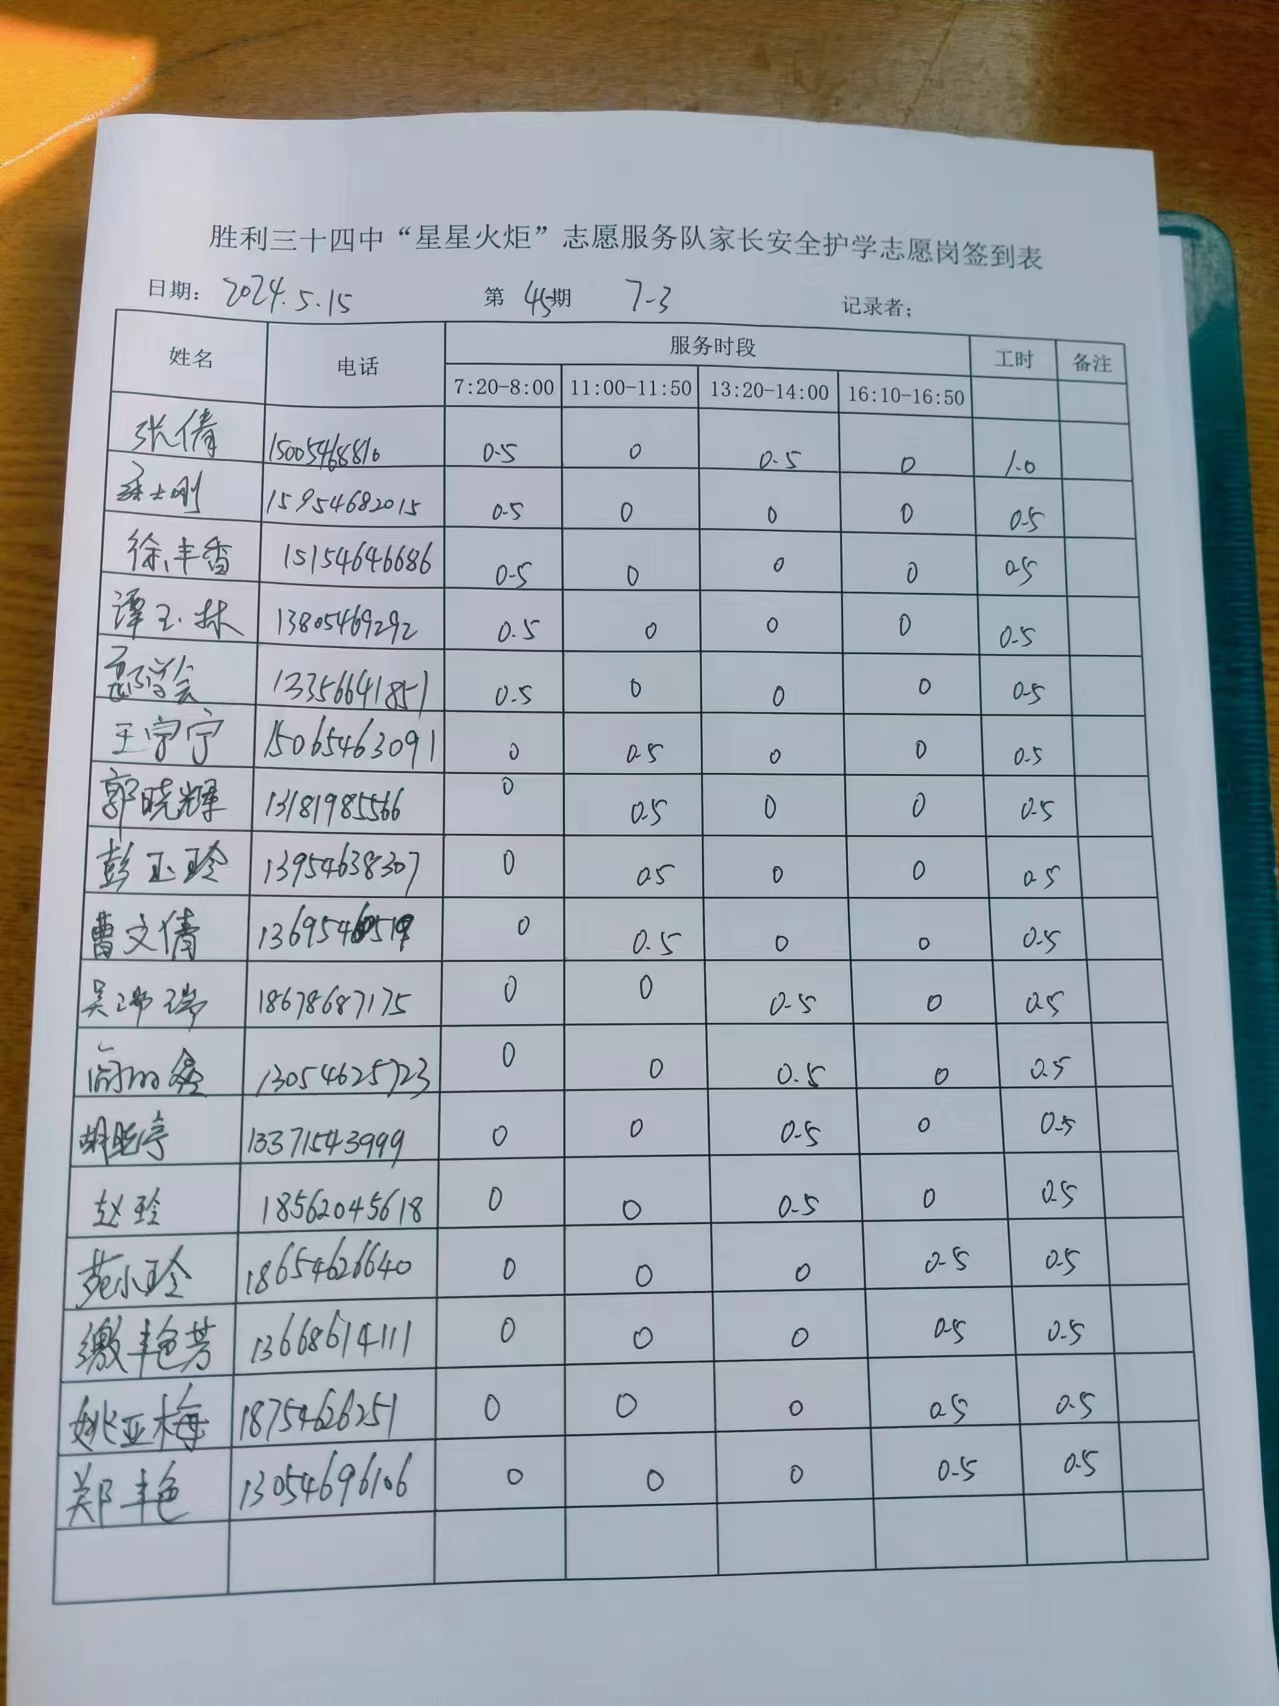 胜利三十四中“星星火炬”志愿服务队家长安全护学志愿岗签到表
日期: 2024.5.15 第 45 期 7-3 记录者;
姓名 电话 服务时段 工时 备注
7:20-8:00 11:00-11:50 13:20-14:00 16:10-16:50
张倩 15005468816 0.5 0 0.5 0 1.0
15954682015 0.5 0 0 0 0.5
徐丰香 15154646686 0.5 0 0 0 0.5
谭玉林 13805469292 0.5 0 0 0 0.5
13356641851 0.5 0 0 0 0.5
王宁宁 15065463091 0 0.5 0 0 0.5
郭晓辉 13181985566 0 0.5 0 0 0.5
彭玉玲 13954638307 0 0.5 0 0 0.5
曹文倩 0 0.5 0 0 0.5
吴瑞瑞 18678687175 0 0 0.5 0 0.5
13054625723 0 0 0.5 0 0.5
胡晓亭 13371543999 0 0 0.5 0 0.5
赵玲 18562045618 0 0 0.5 0 0.5
苑小玲 18654626640 0 0 0 0.5 0.5
缴艳芳 13668614111 0 0 0 0.5 0.5
姚亚梅 18754626251 0 0 0 0.5 0.5
郑艳 13054696106 0 0 0 0.5 0.5